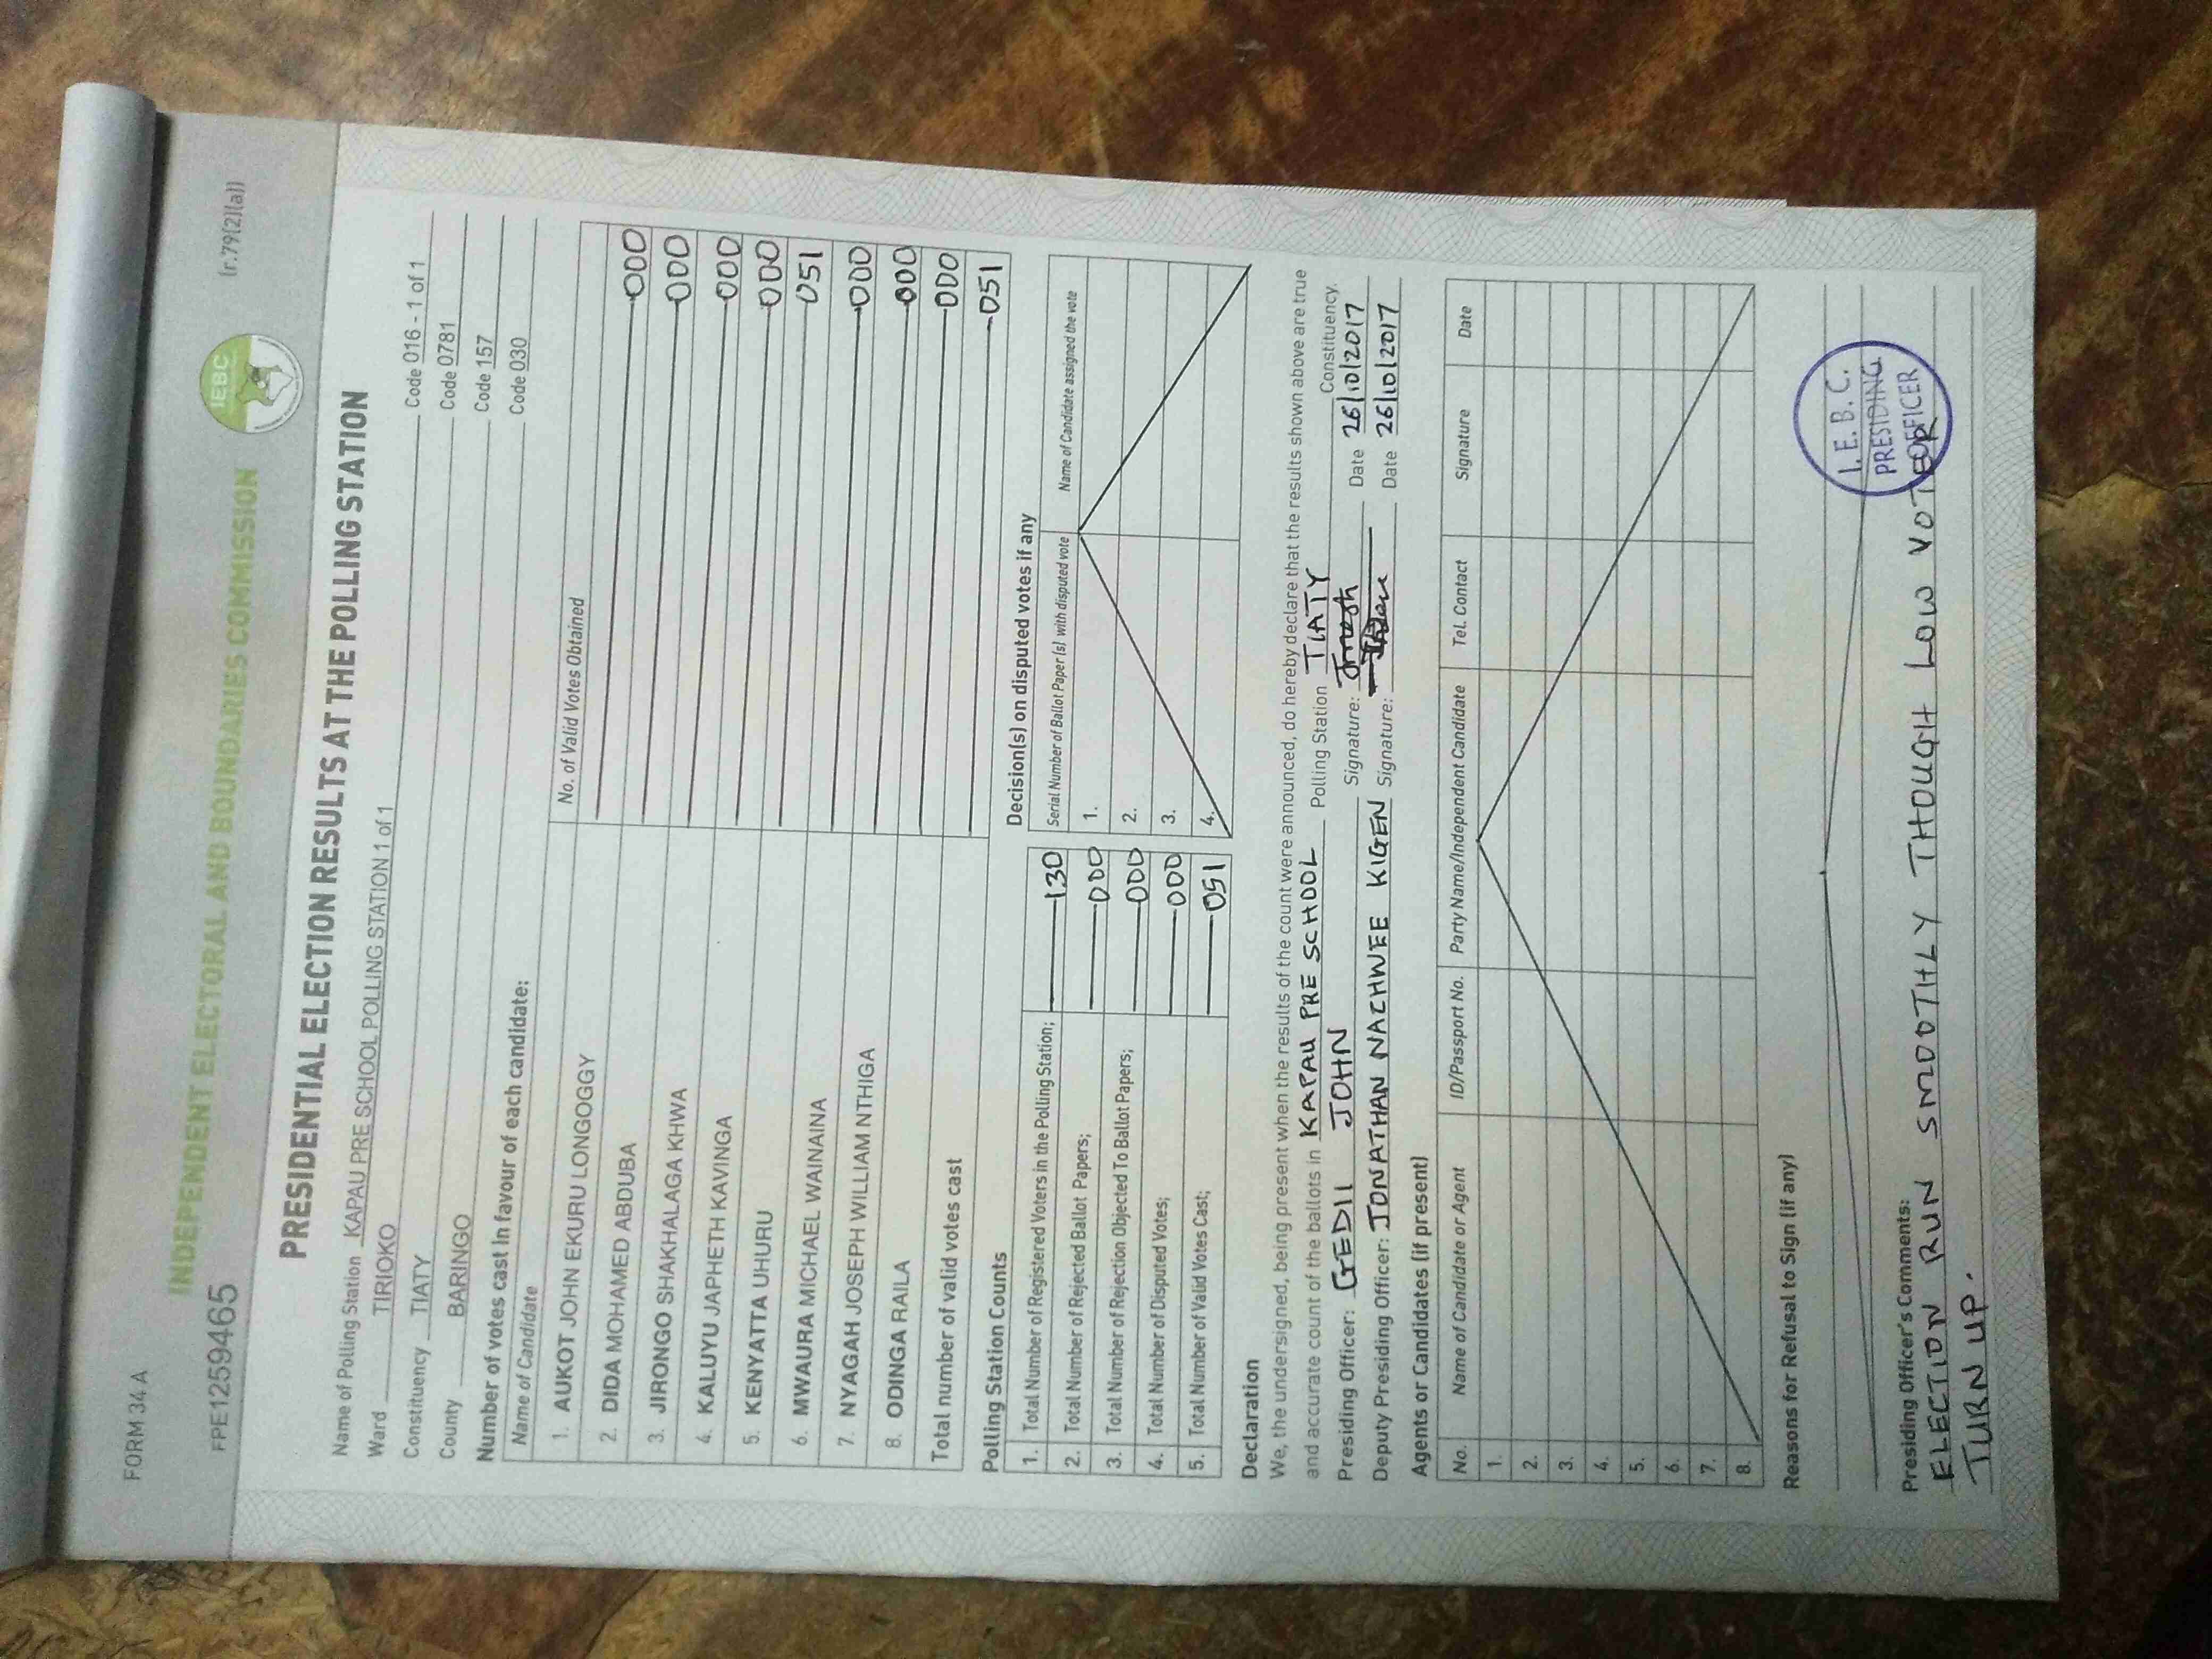 FORM 34 A
(r.79(2)(a))
FPE1259465
INDEPENDENT ELECTORAL AND BOUNDARIES COMMISSION
IEBC
PRESIDENTIAL ELECTION RESULTS AT THE POLLING STATION
Name of Polling Station KAPAU PRE SCHOOL POLLING STATION 1 of 1 Code 016 - 1 of 1
Ward TIRIOKO Code 0781
Constituency TIATY Code 157
County BARINGO Code 030
Number of votes cast in favour of each candidate:
Name of Candidate No. of Valid Votes Obtained
1. AUKOT JOHN EKURU LONGOGGY 000
2. DIDA MOHAMED ABDUBA 000
3. JIRONGO SHAKHALAGA KHWA 000
4. KALUYU JAPHETH KAVINGA 000
5. KENYATTA UHURU 051
6. MWAURA MICHAEL WAINAINA 000
7. NYAGAH JOSEPH WILLIAM NTHIGA 000
8. ODINGA RAILA 000
Total number of valid votes cast 051
Polling Station Counts
1. Total Number of Registered Voters in the Polling Station; 130
2. Total Number of Rejected Ballot Papers; 000
3. Total Number of Rejection Objected To Ballot Papers; 000
4. Total Number of Disputed Votes; 000
5. Total Number of Valid Votes Cast; 051
Decision(s) on disputed votes if any
Serial Number of Ballot Paper (s) with disputed vote Name of Candidate assigned the vote
1.
2.
3.
4.
Declaration
We, the undersigned, being present when the results of the count were announced, do hereby declare that the results shown above are true
and accurate count of the ballots in KAPAU PRE SCHOOL Polling Station TIATY Constituency.
Presiding Officer: GEDII JOHN Signature: Date 26/10/2017
Deputy Presiding Officer: JONATHAN NACHWEE KIGEN Signature: Date 26/10/2017
Agents or Candidates (if present)
No. Name of Candidate or Agent ID/Passport No. Party Name/Independent Candidate Tel. Contact Signature Date
1.
2.
3.
4.
5.
6.
7.
8.
Reasons for Refusal to Sign (if any)
I.E.B.C.
PRESIDING
OFFICER
Presiding Officer's Comments:
ELECTION RUN SMOOTHLY THOUGH LOW VOTER
TURN UP.